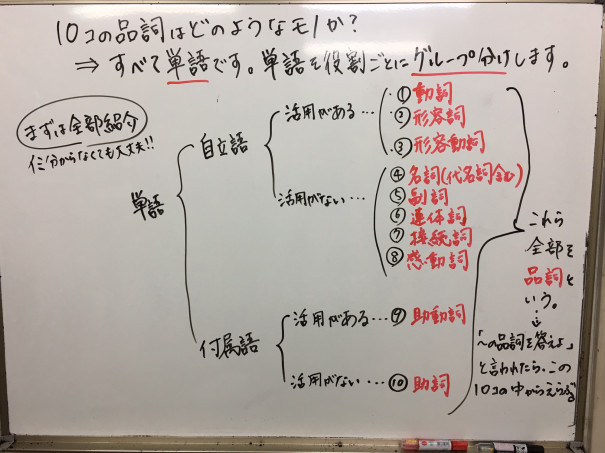 10コの品詞はどのようなモノか?
⇒ すべて単語です。単語を役割ごとにグループ分けします。
まずは全部紹介
イミ分からなくても大丈夫!!
単語
自立語
活用がある…
①動詞
②形容詞
③形容動詞
活用がない…
④名詞(代名詞含む)
⑤副詞
⑥連体詞
⑦接続詞
⑧感動詞
付属語
活用がある…⑨助動詞
活用がない…⑩助詞
これら
全部を
品詞と
いう。
⇓
「〜の品詞を答えよ」
と言われたら、この
10コの中からえらぶ